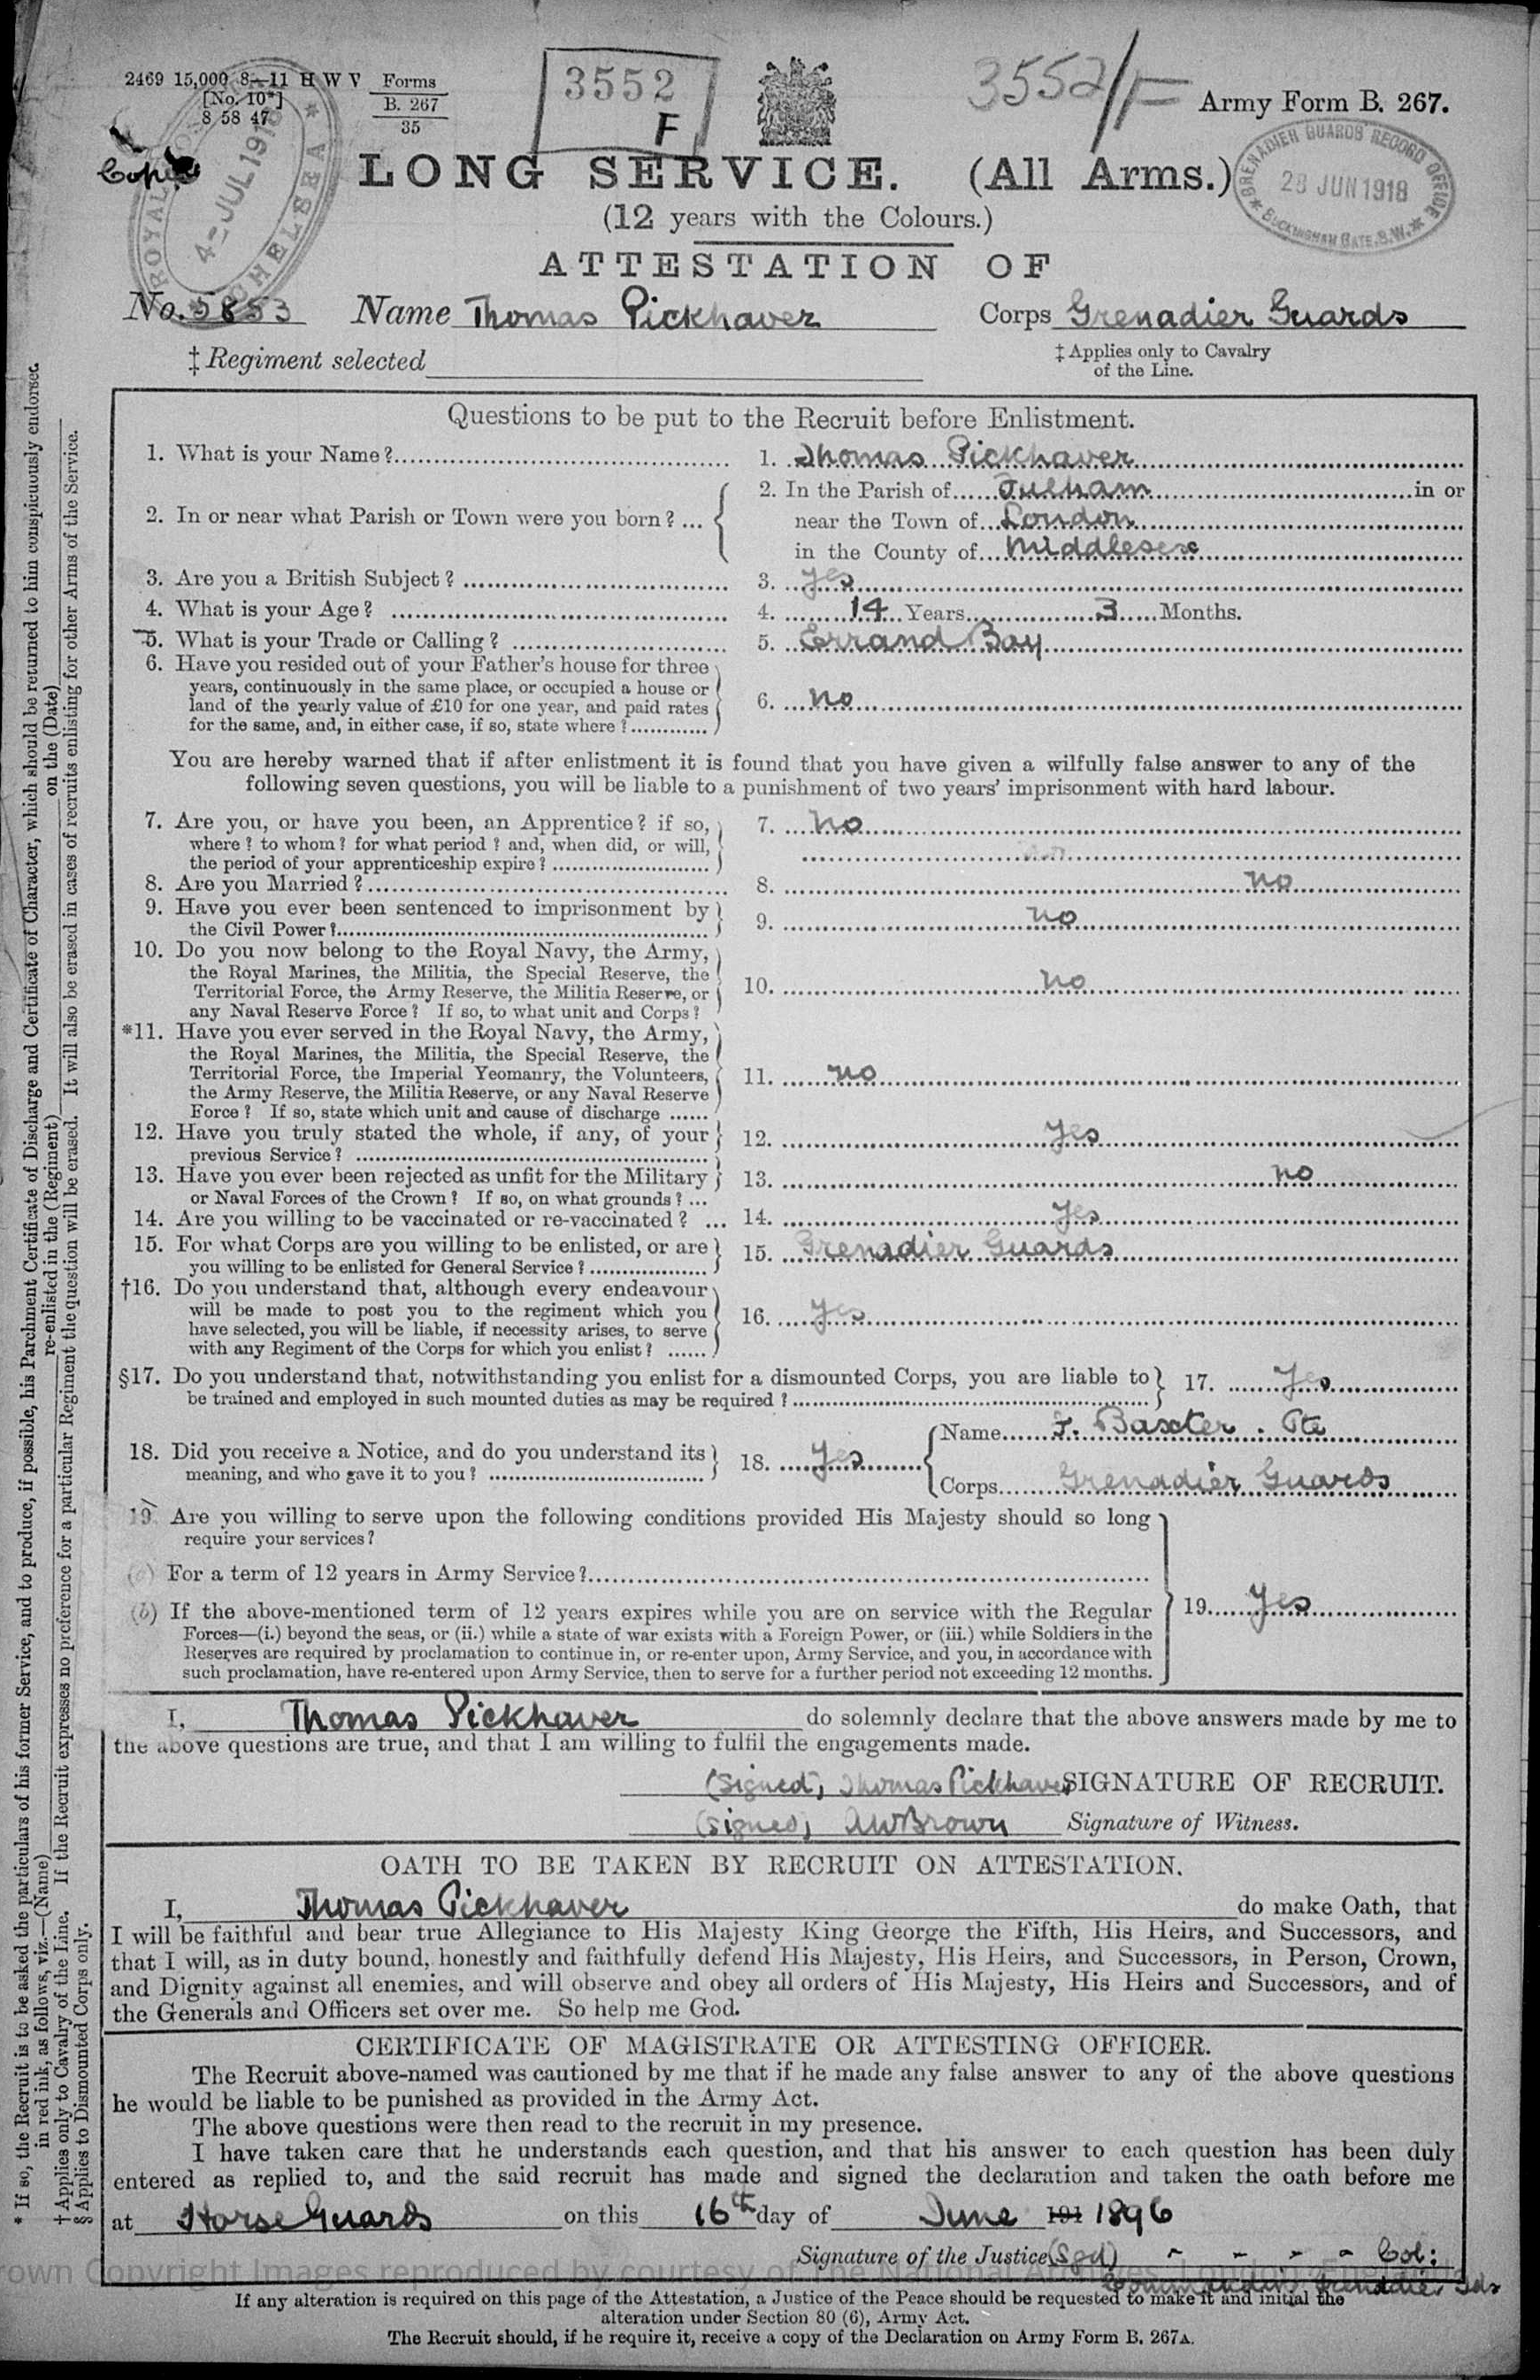 2469 15,000 8—11 H W V Forms
[No. 10*] B. 267
8 58 47 35
3552
F
3552/F
Army Form B. 267.
ROYAL
4-JUL 1918
CHELSEA
LONG SERVICE. (All Arms.)
GRENADIER GUARDS RECORD OFFICE
28 JUN 1918
BUCKINGHAM GATE. S.W.
(12 years with the Colours.)
ATTESTATION OF
No. 5853 Name Thomas Pickhaver Corps Grenadier Guards
‡ Regiment selected
‡ Applies only to Cavalry
of the Line.
Questions to be put to the Recruit before Enlistment.
1. What is your Name? 1. Thomas Pickhaver
2. In or near what Parish or Town were you born? ... 2. In the Parish of Fulham in or
near the Town of London
in the County of Middlesex
3. Are you a British Subject? 3. Yes
4. What is your Age? 4. 14 Years 3 Months.
5. What is your Trade or Calling? 5. Errand Boy
6. Have you resided out of your Father's house for three
years, continuously in the same place, or occupied a house or
land of the yearly value of £10 for one year, and paid rates
for the same, and, in either case, if so, state where? 6. No
You are hereby warned that if after enlistment it is found that you have given a wilfully false answer to any of the
following seven questions, you will be liable to a punishment of two years' imprisonment with hard labour.
7. Are you, or have you been, an Apprentice? if so, 7. No
where? to whom? for what period? and, when did, or will,
the period of your apprenticeship expire?
8. Are you Married? 8. No
9. Have you ever been sentenced to imprisonment by
the Civil Power? 9. No
10. Do you now belong to the Royal Navy, the Army,
the Royal Marines, the Militia, the Special Reserve, the
Territorial Force, the Army Reserve, the Militia Reserve, or
any Naval Reserve Force? If so, to what unit and Corps? 10. No
*11. Have you ever served in the Royal Navy, the Army,
the Royal Marines, the Militia, the Special Reserve, the
Territorial Force, the Imperial Yeomanry, the Volunteers,
the Army Reserve, the Militia Reserve, or any Naval Reserve
Force? If so, state which unit and cause of discharge ...... 11. No
12. Have you truly stated the whole, if any, of your
previous Service? 12. Yes
13. Have you ever been rejected as unfit for the Military
or Naval Forces of the Crown? If so, on what grounds? ... 13. No
14. Are you willing to be vaccinated or re-vaccinated? ... 14. Yes
15. For what Corps are you willing to be enlisted, or are
you willing to be enlisted for General Service? 15. Grenadier Guards
†16. Do you understand that, although every endeavour
will be made to post you to the regiment which you
have selected, you will be liable, if necessity arises, to serve
with any Regiment of the Corps for which you enlist? ...... 16. Yes
§17. Do you understand that, notwithstanding you enlist for a dismounted Corps, you are liable to
be trained and employed in such mounted duties as may be required? 17. Yes
18. Did you receive a Notice, and do you understand its
meaning, and who gave it to you? 18. Yes Name Baxter . Pte
Corps Grenadier Guards
19. Are you willing to serve upon the following conditions provided His Majesty should so long
require your services?
(a) For a term of 12 years in Army Service?
(b) If the above-mentioned term of 12 years expires while you are on service with the Regular 19. Yes
Forces—(i.) beyond the seas, or (ii.) while a state of war exists with a Foreign Power, or (iii.) while Soldiers in the
Reserves are required by proclamation to continue in, or re-enter upon, Army Service, and you, in accordance with
such proclamation, have re-entered upon Army Service, then to serve for a further period not exceeding 12 months.
I, Thomas Pickhaver do solemnly declare that the above answers made by me to
the above questions are true, and that I am willing to fulfil the engagements made.
(Signed) Thomas Pickhaver SIGNATURE OF RECRUIT.
(Signed) AWBrown Signature of Witness.
OATH TO BE TAKEN BY RECRUIT ON ATTESTATION.
I, Thomas Pickhaver do make Oath, that
I will be faithful and bear true Allegiance to His Majesty King George the Fifth, His Heirs, and Successors, and
that I will, as in duty bound, honestly and faithfully defend His Majesty, His Heirs, and Successors, in Person, Crown,
and Dignity against all enemies, and will observe and obey all orders of His Majesty, His Heirs and Successors, and of
the Generals and Officers set over me. So help me God.
CERTIFICATE OF MAGISTRATE OR ATTESTING OFFICER.
The Recruit above-named was cautioned by me that if he made any false answer to any of the above questions
he would be liable to be punished as provided in the Army Act.
The above questions were then read to the recruit in my presence.
I have taken care that he understands each question, and that his answer to each question has been duly
entered as replied to, and the said recruit has made and signed the declaration and taken the oath before me
at Horse Guards on this 16th day of June 191 1896
Signature of the Justice (Sgd) - - - - Col:
Commanding Grenadier Gds
If any alteration is required on this page of the Attestation, a Justice of the Peace should be requested to make it and initial the
alteration under Section 80 (6), Army Act.
The Recruit should, if he require it, receive a copy of the Declaration on Army Form B. 267A.
* If so, the Recruit is to be asked the particulars of his former Service, and to produce, if possible, his Parchment Certificate of Discharge and Certificate of Character, which should be returned to him conspicuously endorsed
in red ink, as follows, viz.—(Name) re-enlisted in the (Regiment) on the (Date)
† Applies only to Cavalry of the Line. If the Recruit expresses no preference for a particular Regiment the question will be erased. It will also be erased in cases of recruits enlisting for other Arms of the Service.
§ Applies to Dismounted Corps only.